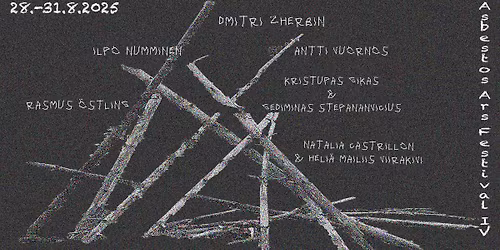 28.-31.8.2025
DMITRI ZHERBIN
ILPO NUMMINEN
ANTTI VUORNOS
KRISTUPAS GIKAS
&
GEDIMINAS STEPANANVICIUS
RASMUS ÖSTLING
NATALIA CASTRILLON
& HELIÄ MAILIIS VIIRAKIVI
Asbestos Ars Festival IV